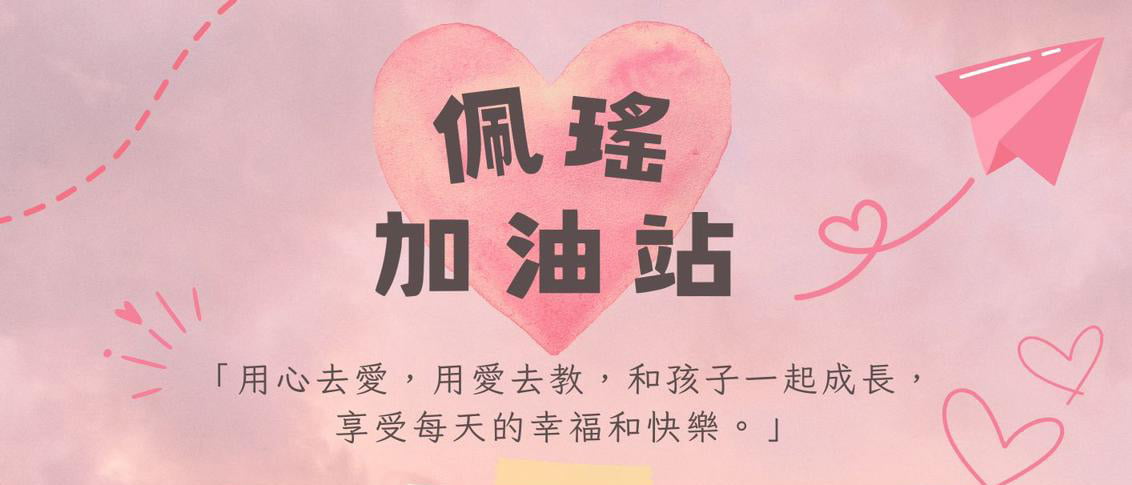 佩瑤
加油站
「用心去愛，用愛去教，和孩子一起成長，
享受每天的幸福和快樂。」